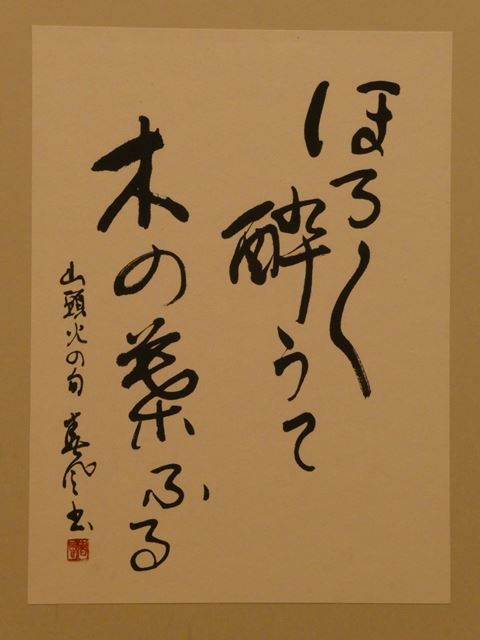 ほろ〱
酔うて
木の葉ふる
山頭火の句